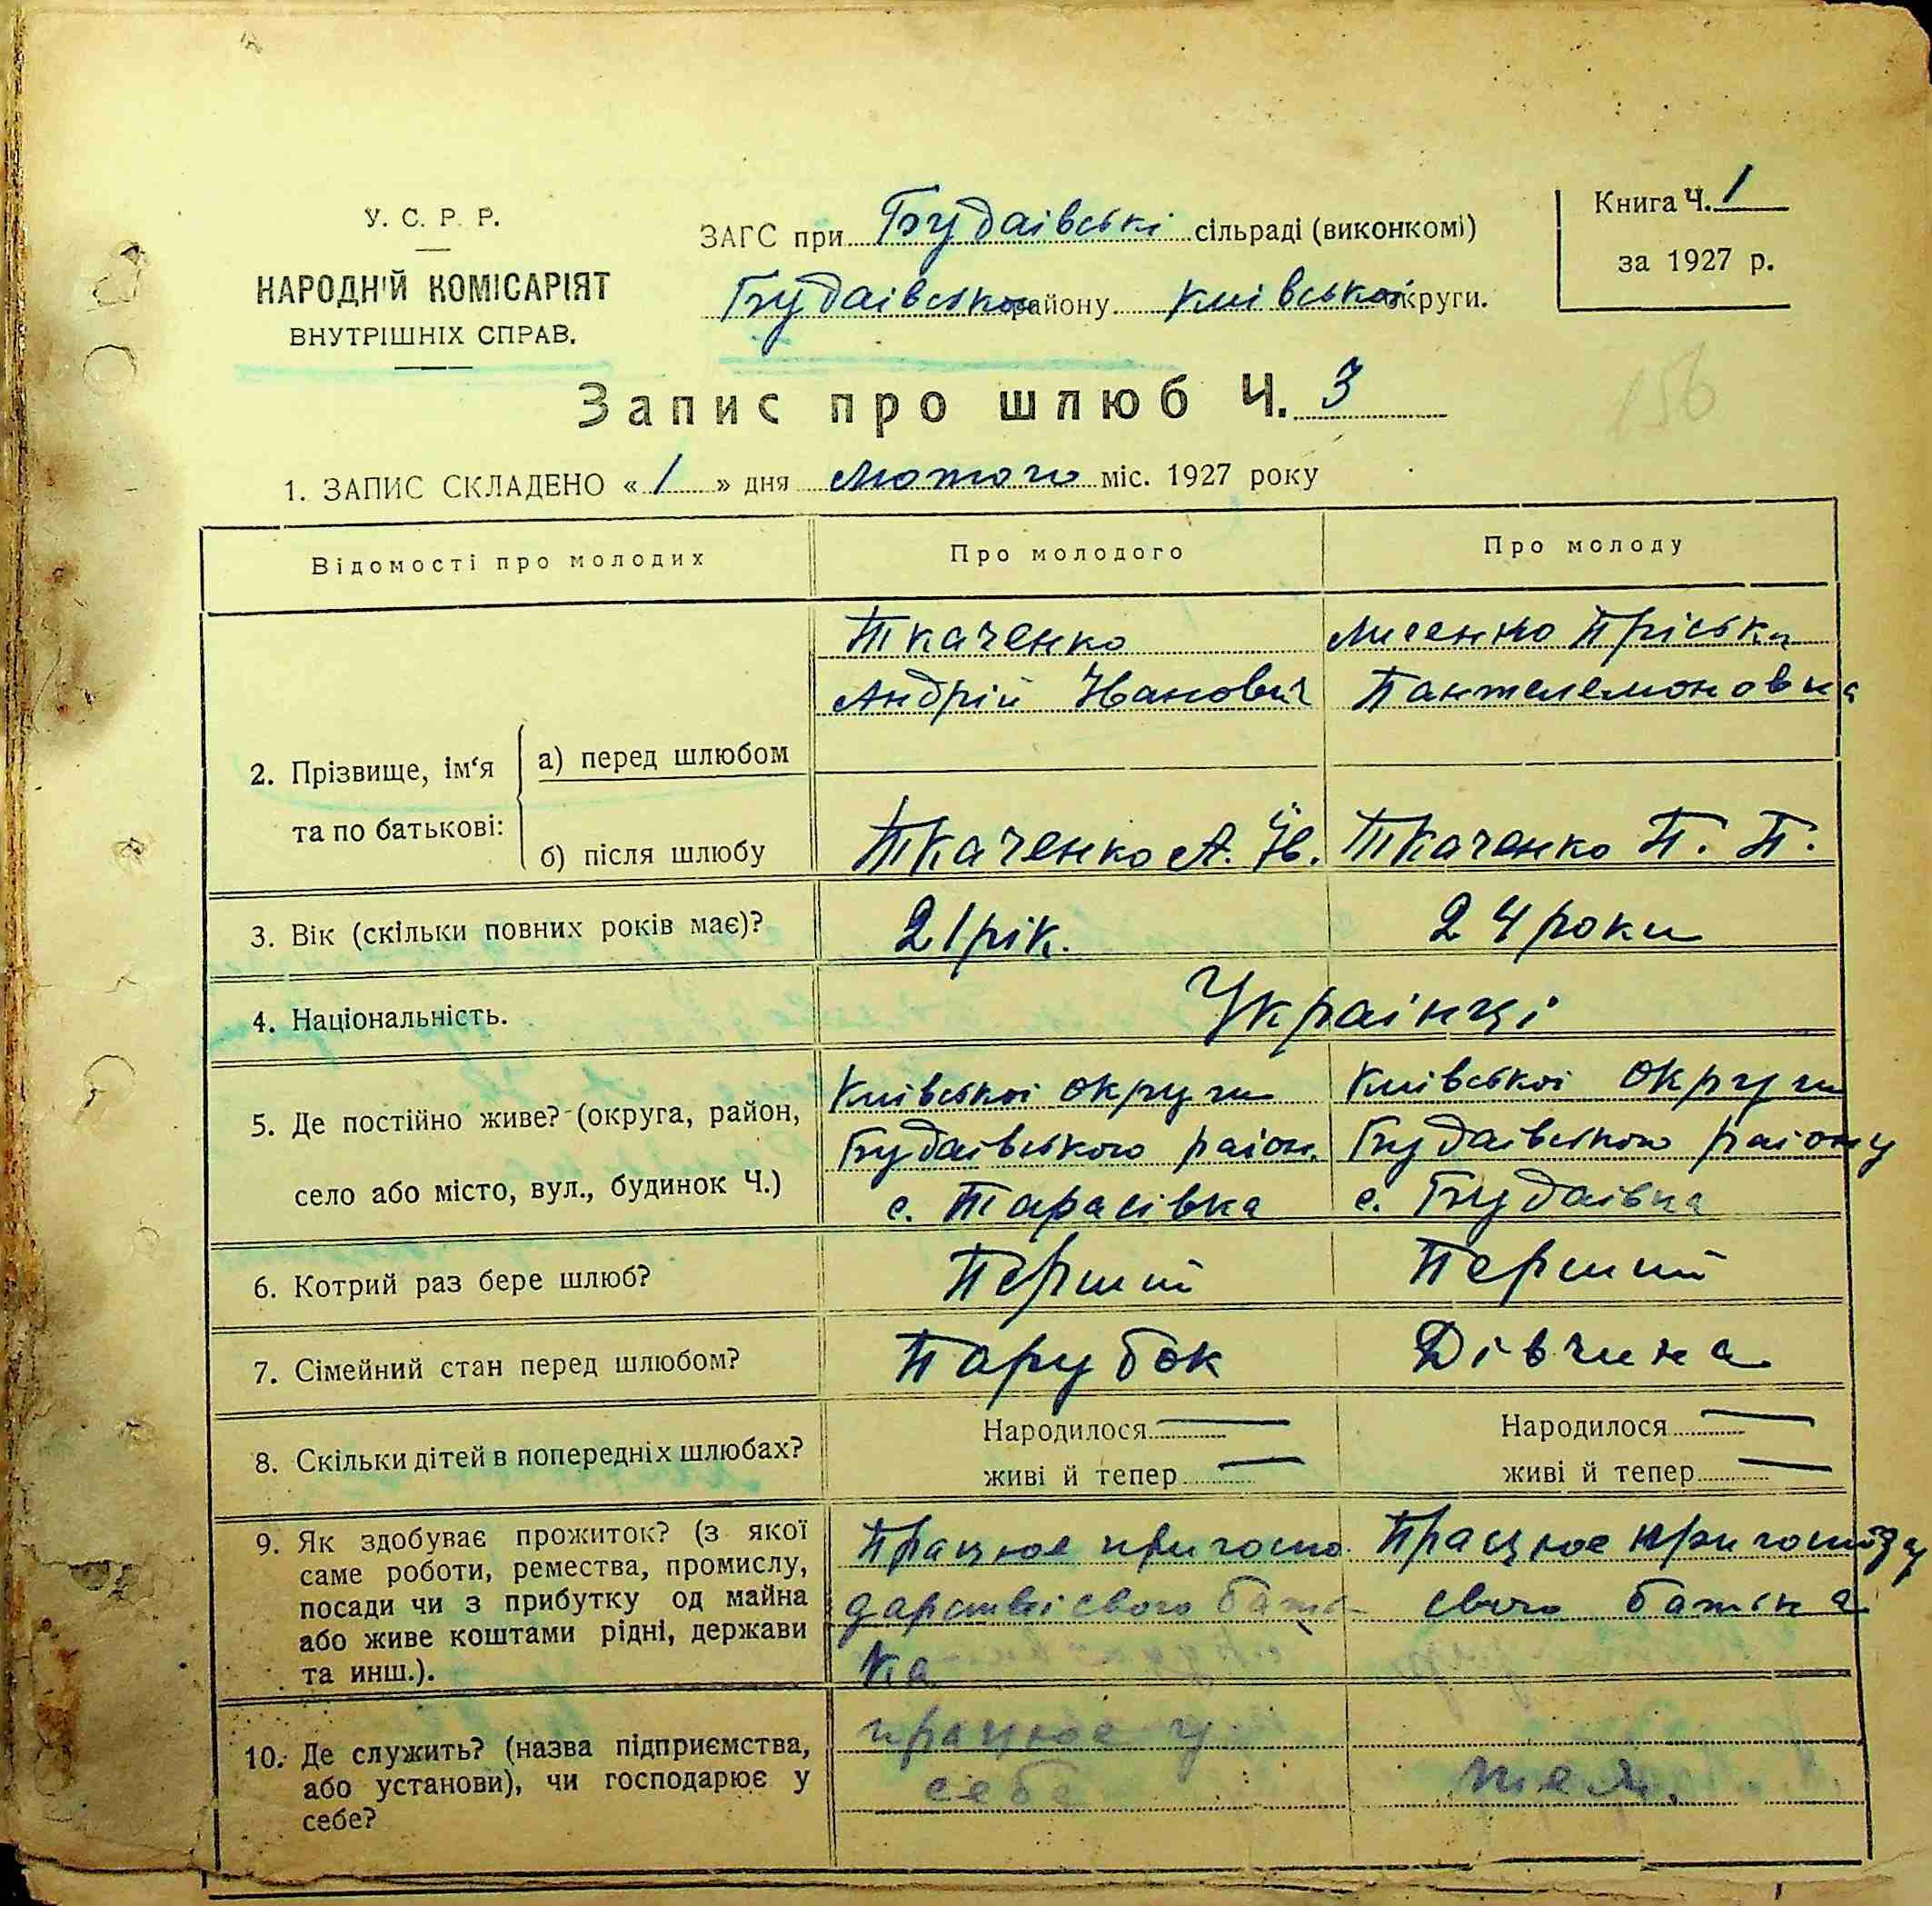 У. С. Р. Р.
НАРОДНІЙ КОМІСАРІЯТ
ВНУТРІШНІХ СПРАВ.
ЗАГС при Будаівські сільраді (виконкомі)
Будаівського району Київської округи.
Книга Ч. 1
за 1927 р.
156
Запис про шлюб Ч. 3
1. ЗАПИС СКЛАДЕНО « 1 » дня Лютого міс. 1927 року
Відомості про молодих
Про молодого
Про молоду
2. Прізвище, ім‘я та по батькові:
а) перед шлюбом
Ткаченко
Андрій Іванович
Лисенко Пріська
Пантелемоновна
б) після шлюбу
Ткаченко А. Ів.
Ткаченко П. П.
3. Вік (скільки повних років має)?
21 рік.
24 роки
4. Національність.
Українці
5. Де постійно живе? (округа, район,
село або місто, вул., будинок Ч.)
Київської округи
Будаівського район.
с. Тарасівка
Київської округи
Будаівського району
с. Будаівка
6. Котрий раз бере шлюб?
Перший
Перший
7. Сімейний стан перед шлюбом?
Парубок
Дівчина
8. Скільки дітей в попередніх шлюбах?
Народилося —
живі й тепер —
Народилося —
живі й тепер —
9. Як здобуває прожиток? (з якої
саме роботи, ремества, промислу,
посади чи з прибутку од майна
або живе коштами рідні, держави
та инш.).
Працює при госпо
дарстві свого бать
ка
Працює при госпозу
свого батька
10. Де служить? (назва підприємства,
або установи), чи господарює у
себе?
працює у
себе
теж.